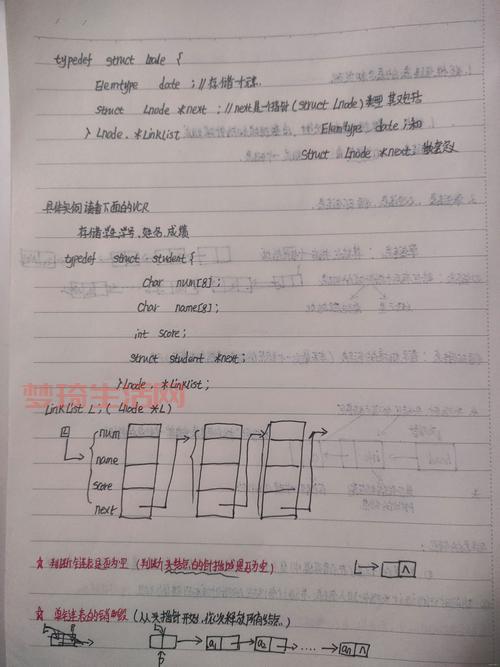 typedef struct Lnode {
Elemtype date ; //存储
struct Lnode *next ; //next是一个指针(struct Lnode)类型 其又包括
} Lnode, *LinkList
Elemtype date ;和
struct Lnode *next; 嵌套定义
具体实例 请看下面的VCR
存储学生学号、姓名、成绩
typedef struct student {
char num[8] ;
char name[8] ;
int score ;
struct student *next ;
} Lnode , *LinkList ;
梦琦生活网
LinkList L ; ( Lnode *L)
L
num
name
score
next
☆ 判断链表是否为空 (判断头结点的指针域是否为空)
L ∧
☆ 单链表的销毁 (从头指针开始, 依次释放所有结点)
L a1 a2 ..... an ∧
P